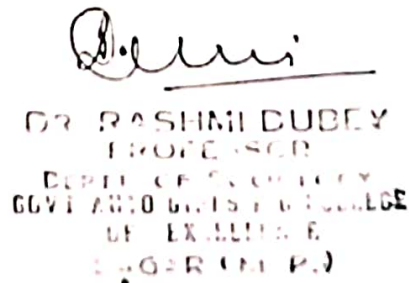 DR RASHMI DUBEY
PROFESSOR
DEPTT OF
GOVT AUTO GIRLS P G COLLEGE
OF EXCELLENCE
SAGAR (M.P.)